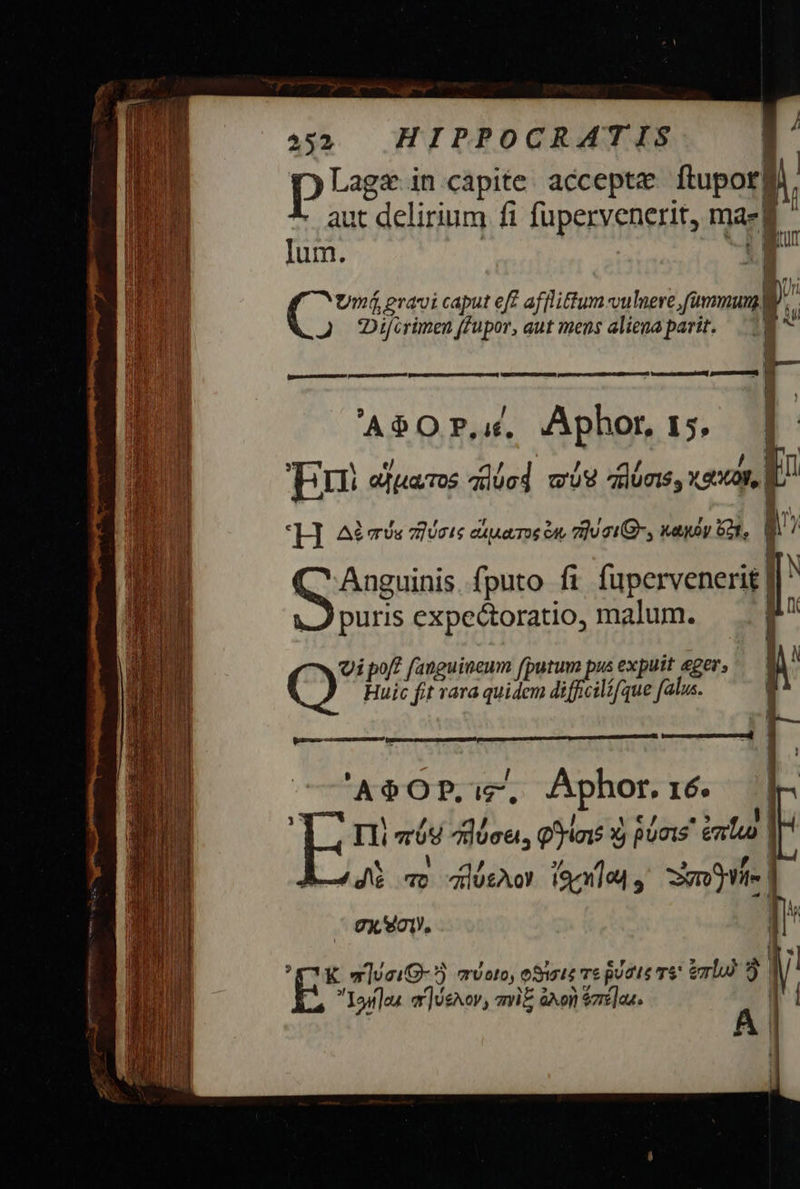 252 HIPPOCRATIS
PLagæ in capite acceptæ ſtupor
aut delirium ſi ſupervenerit, ma-
lum.
CUmq́ gravi caput eſt afflictum vulnere, ſummum
Diſcrimen ſtupor, aut mens aliena parit.
ἈΦΟΡ. ιέ. Aphor. 15.
Ἐπὶ αἵματος πτύσ πύου πτύσις, κακόν,
Ἡ Δὲ πύου πτύσις αἵματος ἐκ πτύσιος, κακόν ὅτι,
SAnguinis ſputo ſi ſupervenerit
puris expectoratio, malum.
QUi poſt ſanguineum ſputum pus expuit æger,
Huic fit rara quidem difficiliſque ſalus.
ἈΦΟΡ. ις΄. Aphor. 16.
Ἐπὶ πύου πτύσει, φθίσις καὶ ῥύσις· ἐπὴν
δὲ τὸ πτύελον ἴσχηται, ἀποθνή-
σκουσιν.
ἘΚ πτύσιος πύοιο, φθίσις τε ῥύσις τε· ἐπὴν
Ἴσχηται πτύελον,
A